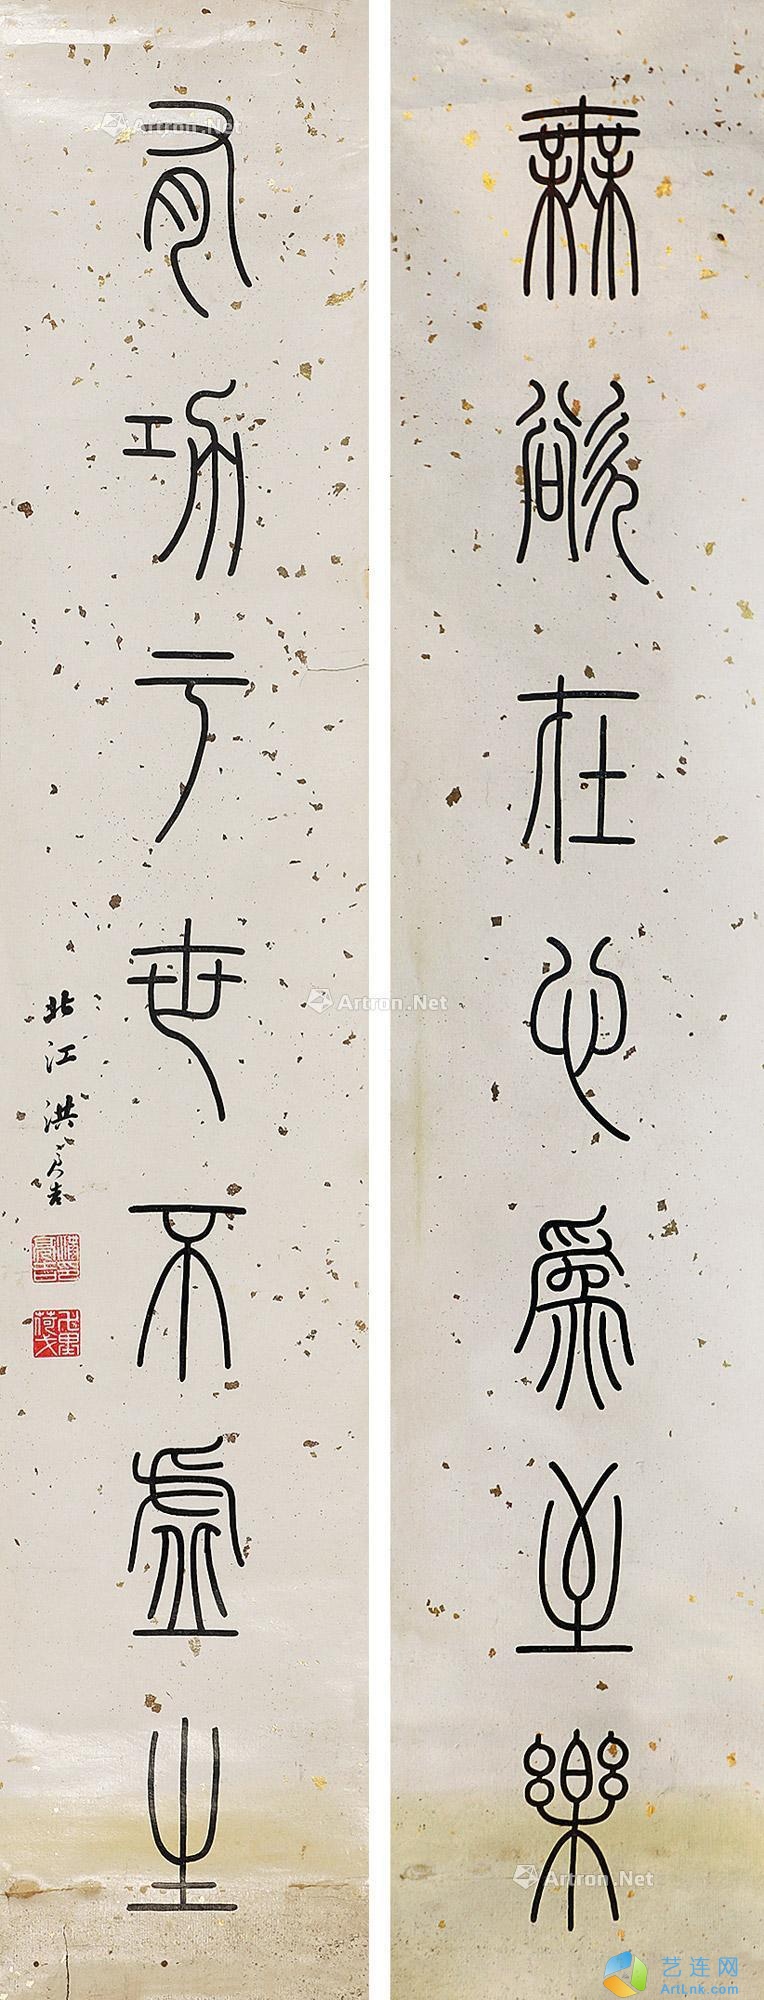 無欲在心為至樂
有功于世不虛生
北江洪亮吉
Artron.Net
Artron.Net
Artron.Net
艺连网
ArtLnk.com